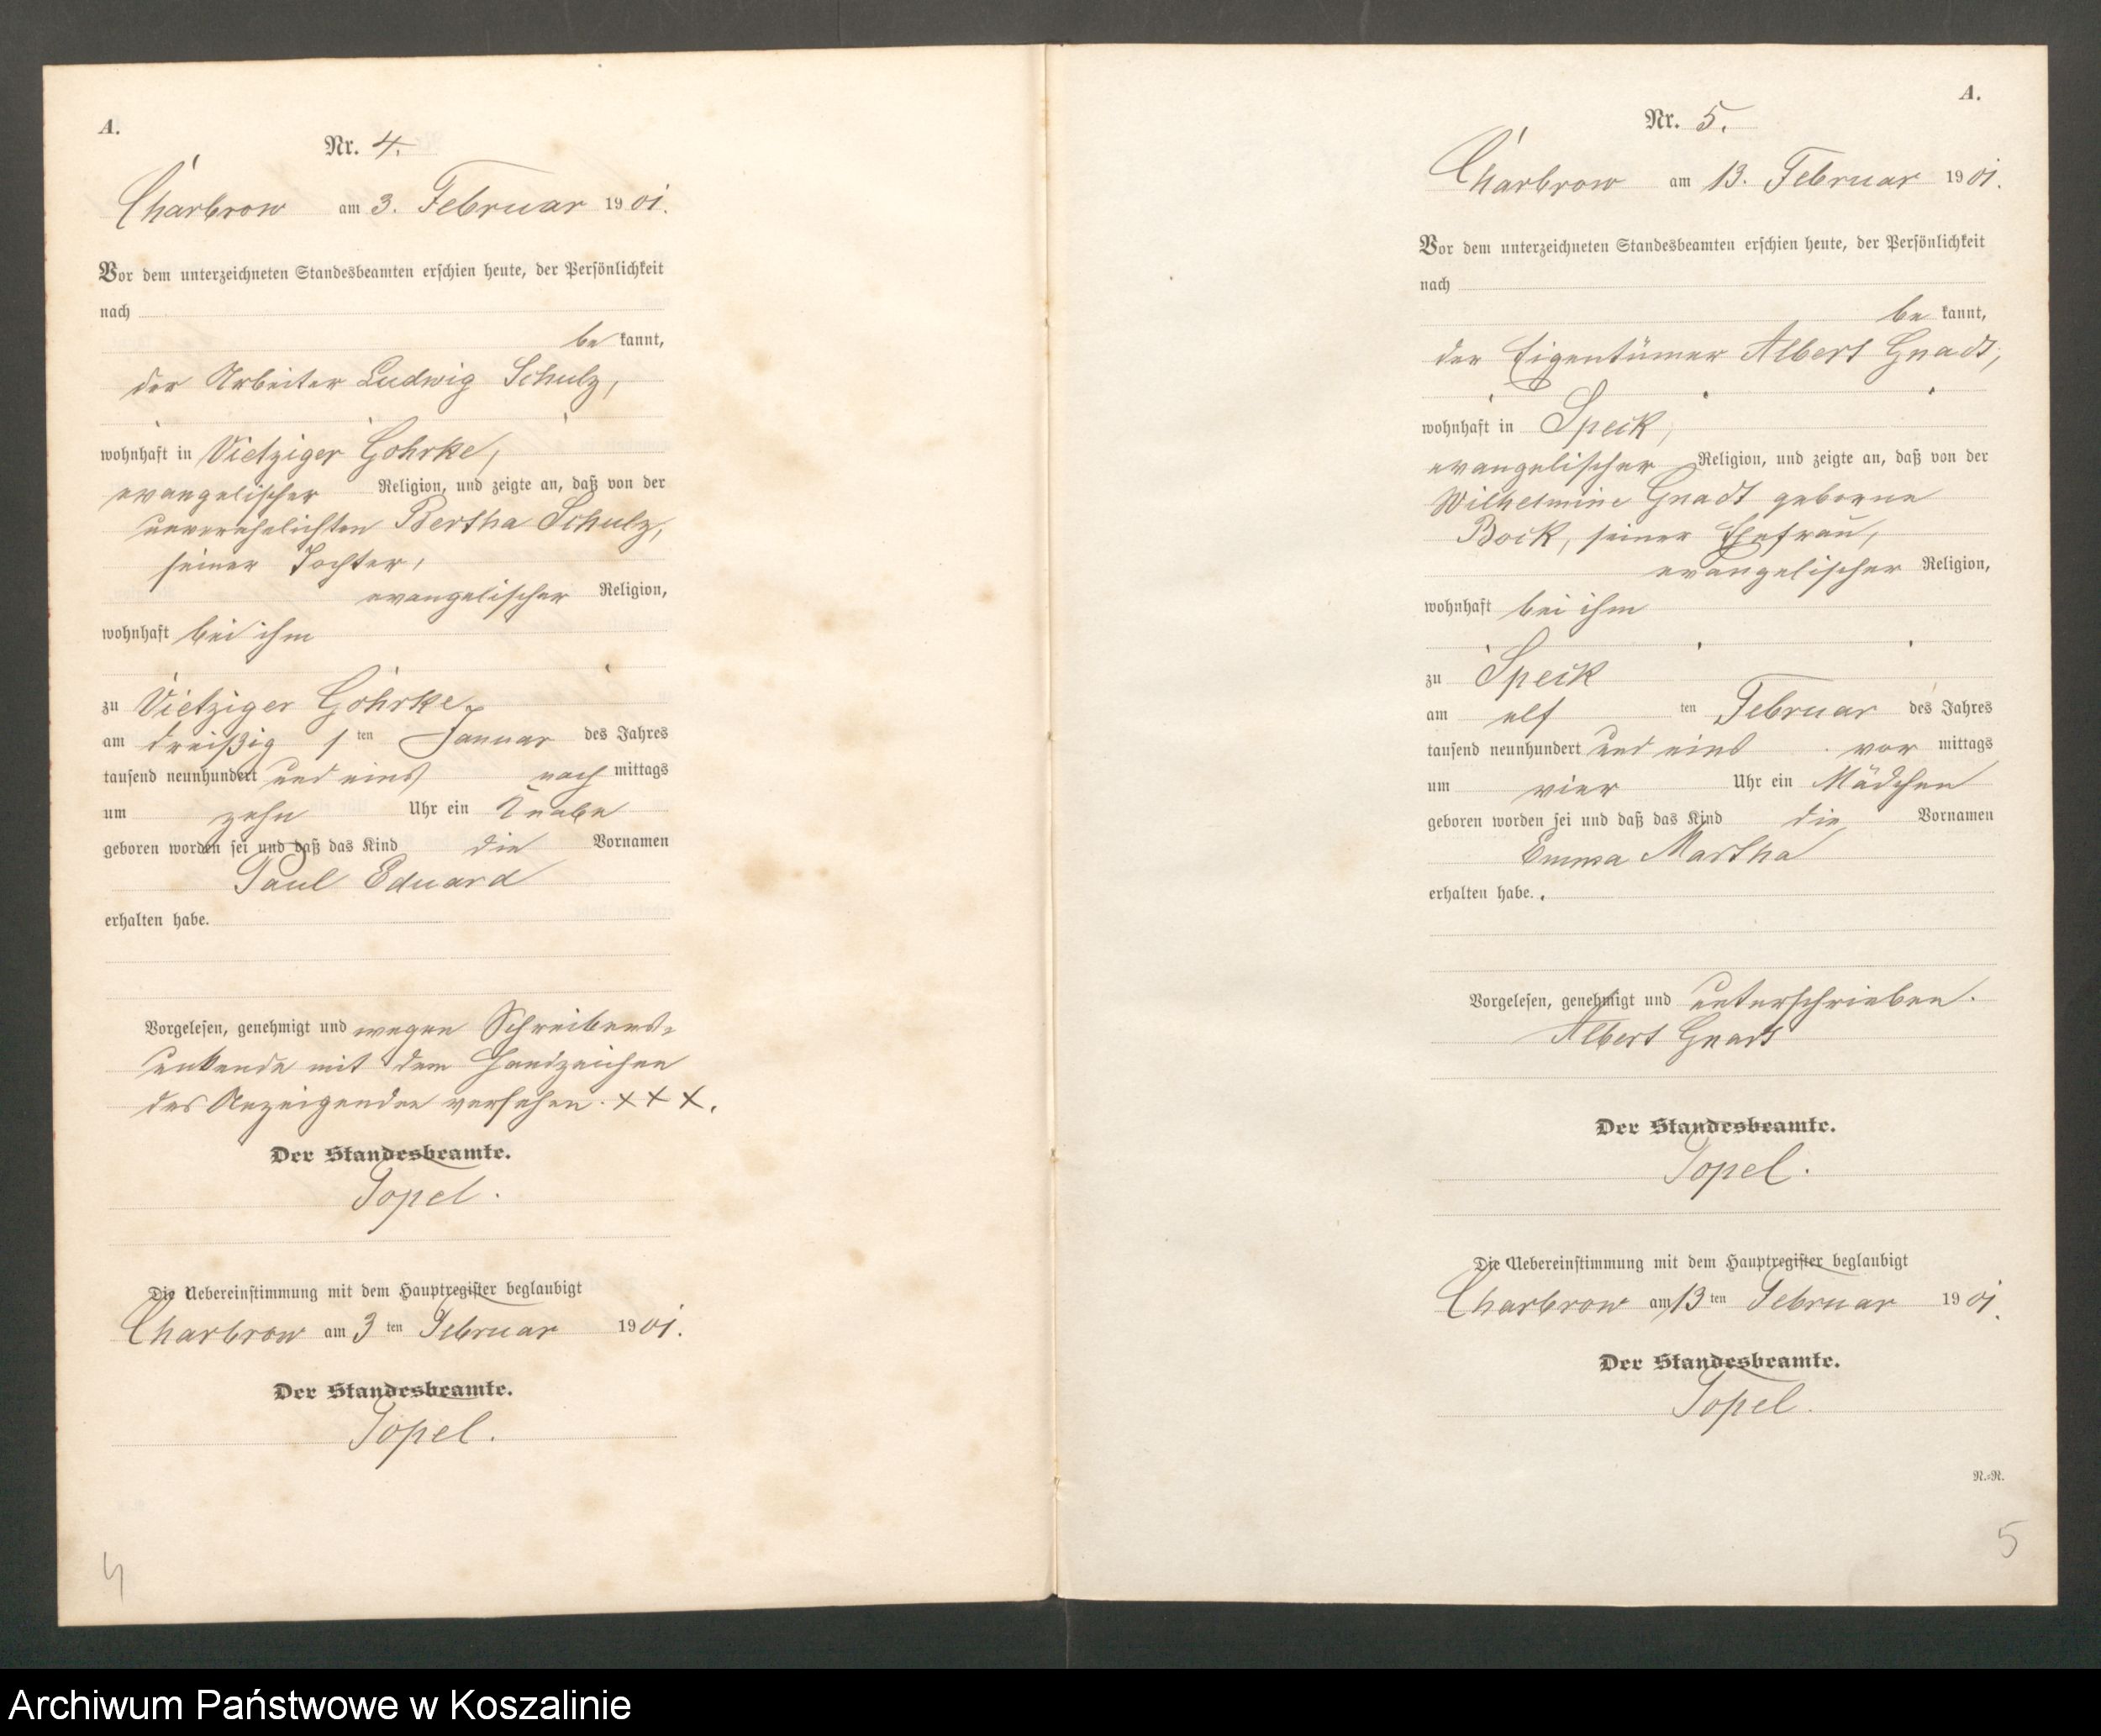 A.
Nr. 4.
Charbrow am 3. Februar 1901.
Vor dem unterzeichneten Standesbeamten erschien heute, der Persönlichkeit
nach
be kannt,
der Arbeiter Ludwig Schulz,
wohnhaft in Vietziger Gohrke,
evangelischer Religion, und zeigte an, daß von der
unverehelichten Bertha Schulz,
seiner Tochter,
evangelischer Religion,
wohnhaft bei ihm
zu Vietziger Gohrke
am dreißig 1 ten Januar des Jahres
tausend neunhundert und eins nach mittags
um zehn Uhr ein Knabe
geboren worden sei und daß das Kind die Vornamen
Paul Eduard
erhalten habe.
Vorgelesen, genehmigt und wegen Schreibens-
unkunde mit dem Handzeichen
des Anzeigenden versehen. XXX.
Der Standesbeamte.
Topel.
Die Uebereinstimmung mit dem Hauptregister beglaubigt
Charbrow am 3 ten Februar 1901.
Der Standesbeamte.
Topel.
4
A.
Nr. 5.
Charbrow am 13. Februar 1901.
Vor dem unterzeichneten Standesbeamten erschien heute, der Persönlichkeit
nach
be kannt,
der Eigentümer Albert Gnadt,
wohnhaft in Speck,
evangelischer Religion, und zeigte an, daß von der
Wilhelmine Gnadt geborne
Bock, seiner Ehefrau,
evangelischer Religion,
wohnhaft bei ihm
zu Speck
am elf ten Februar des Jahres
tausend neunhundert und eins vor mittags
um vier Uhr ein Mädchen
geboren worden sei und daß das Kind die Vornamen
Emma Martha
erhalten habe.
Vorgelesen, genehmigt und unterschrieben.
Albert Gnadt
Der Standesbeamte.
Topel.
Die Uebereinstimmung mit dem Hauptregister beglaubigt
Charbrow am 13 ten Februar 1901.
Der Standesbeamte.
Topel.
N.-R.
5
Archiwum Państwowe w Koszalinie